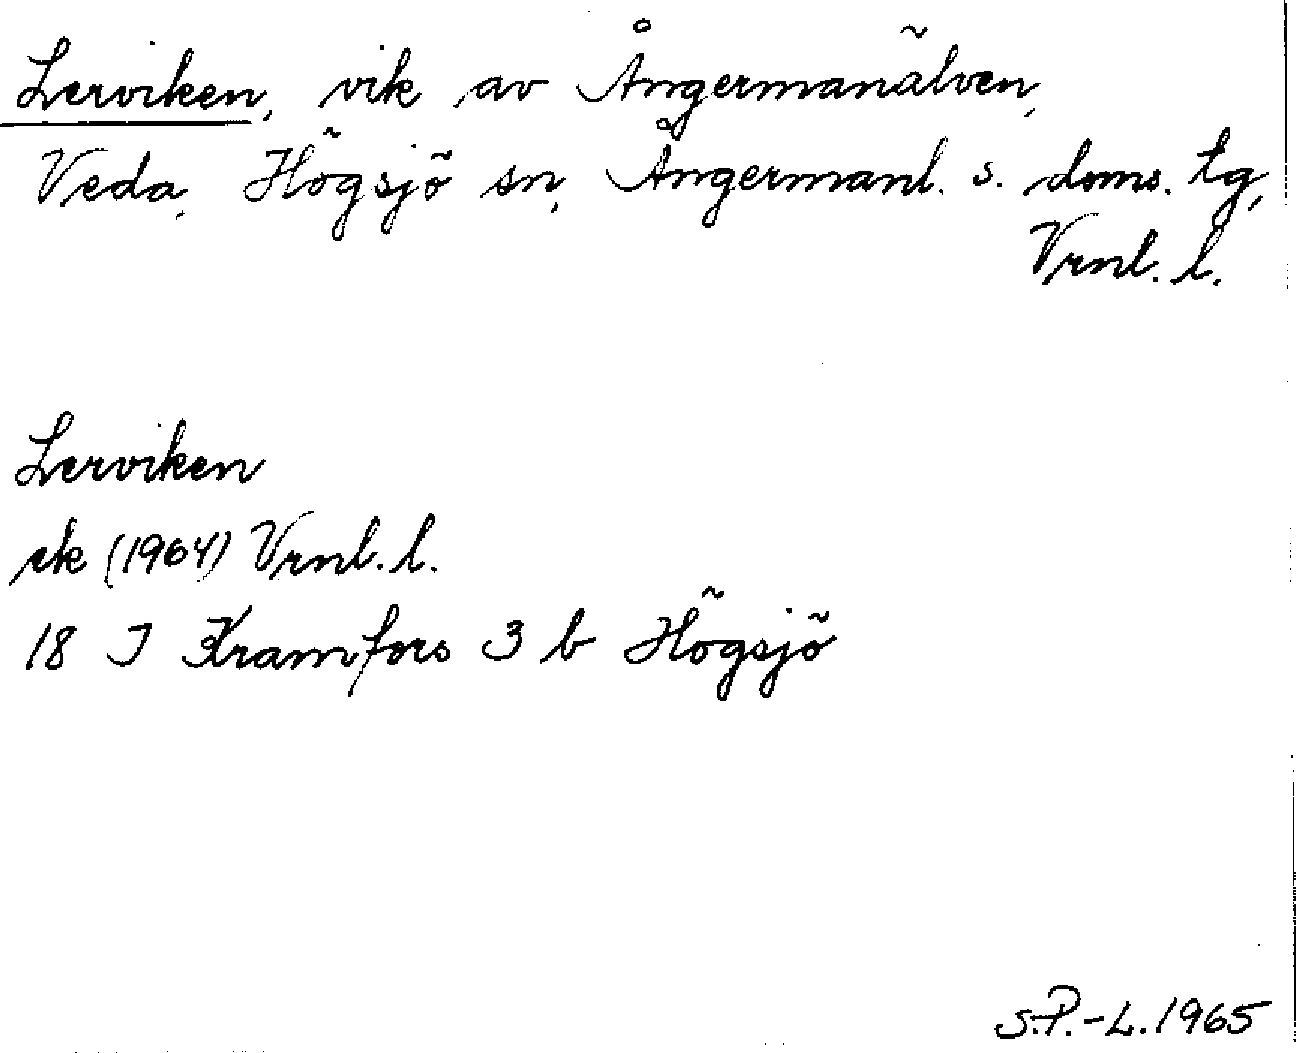 Lerviken, vik av Ångermanälven,
Veda, Högsjö sn, Ångermanl. s. doms. tg,
Vrnl. l.
Lerviken
ek (1964) Vrnl. l.
18 I Kramfors 3 b Högsjö
S.P.-L. 1965